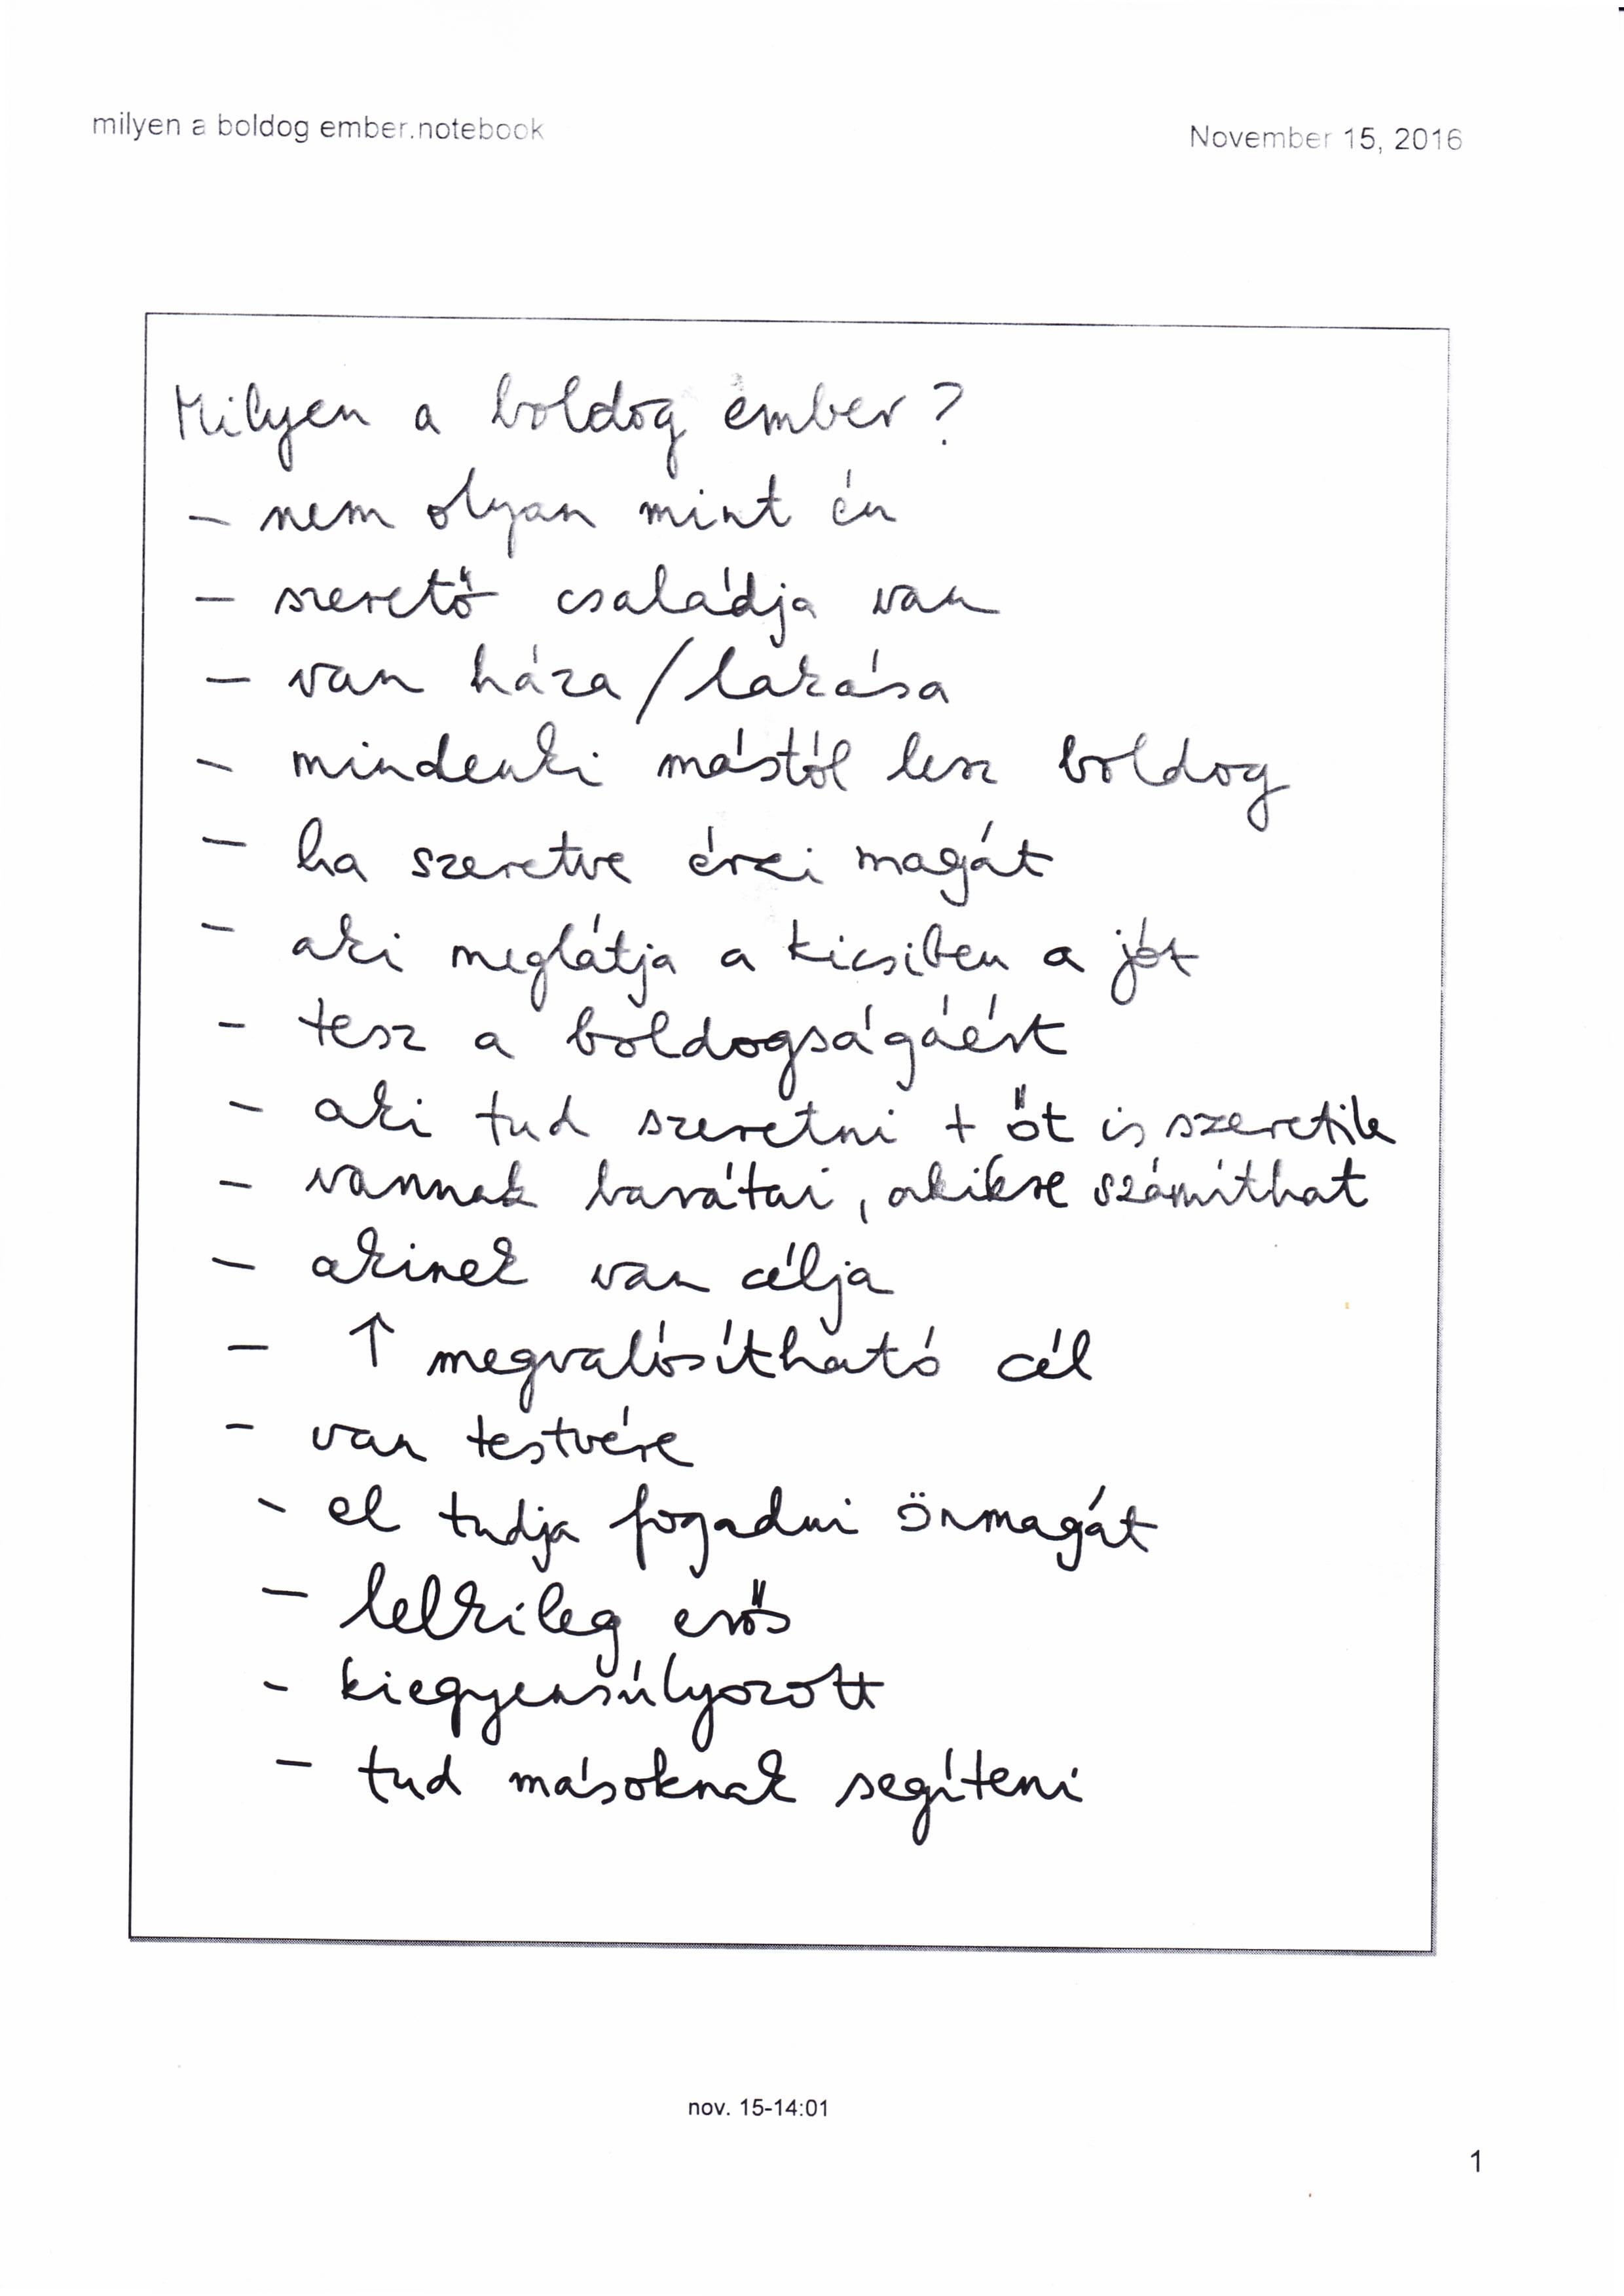 milyen a boldog ember.notebook
November 15, 2016
Milyen a boldog ember?
- nem olyan mint én
- szerető családja van
- van háza/lakása
- mindenki mástól lesz boldog
- ha szeretve érzi magát
- aki meglátja a kicsiben a jót
- tesz a boldogságáért
- aki tud szeretni + őt is szeretik
- vannak barátai, akikre számíthat
- akinek van célja
- ↑ megvalósítható cél
- van testvére
- el tudja fogadni önmagát
- lelkileg erős
- kiegyensúlyozott
- tud másoknak segíteni
nov. 15-14:01
1